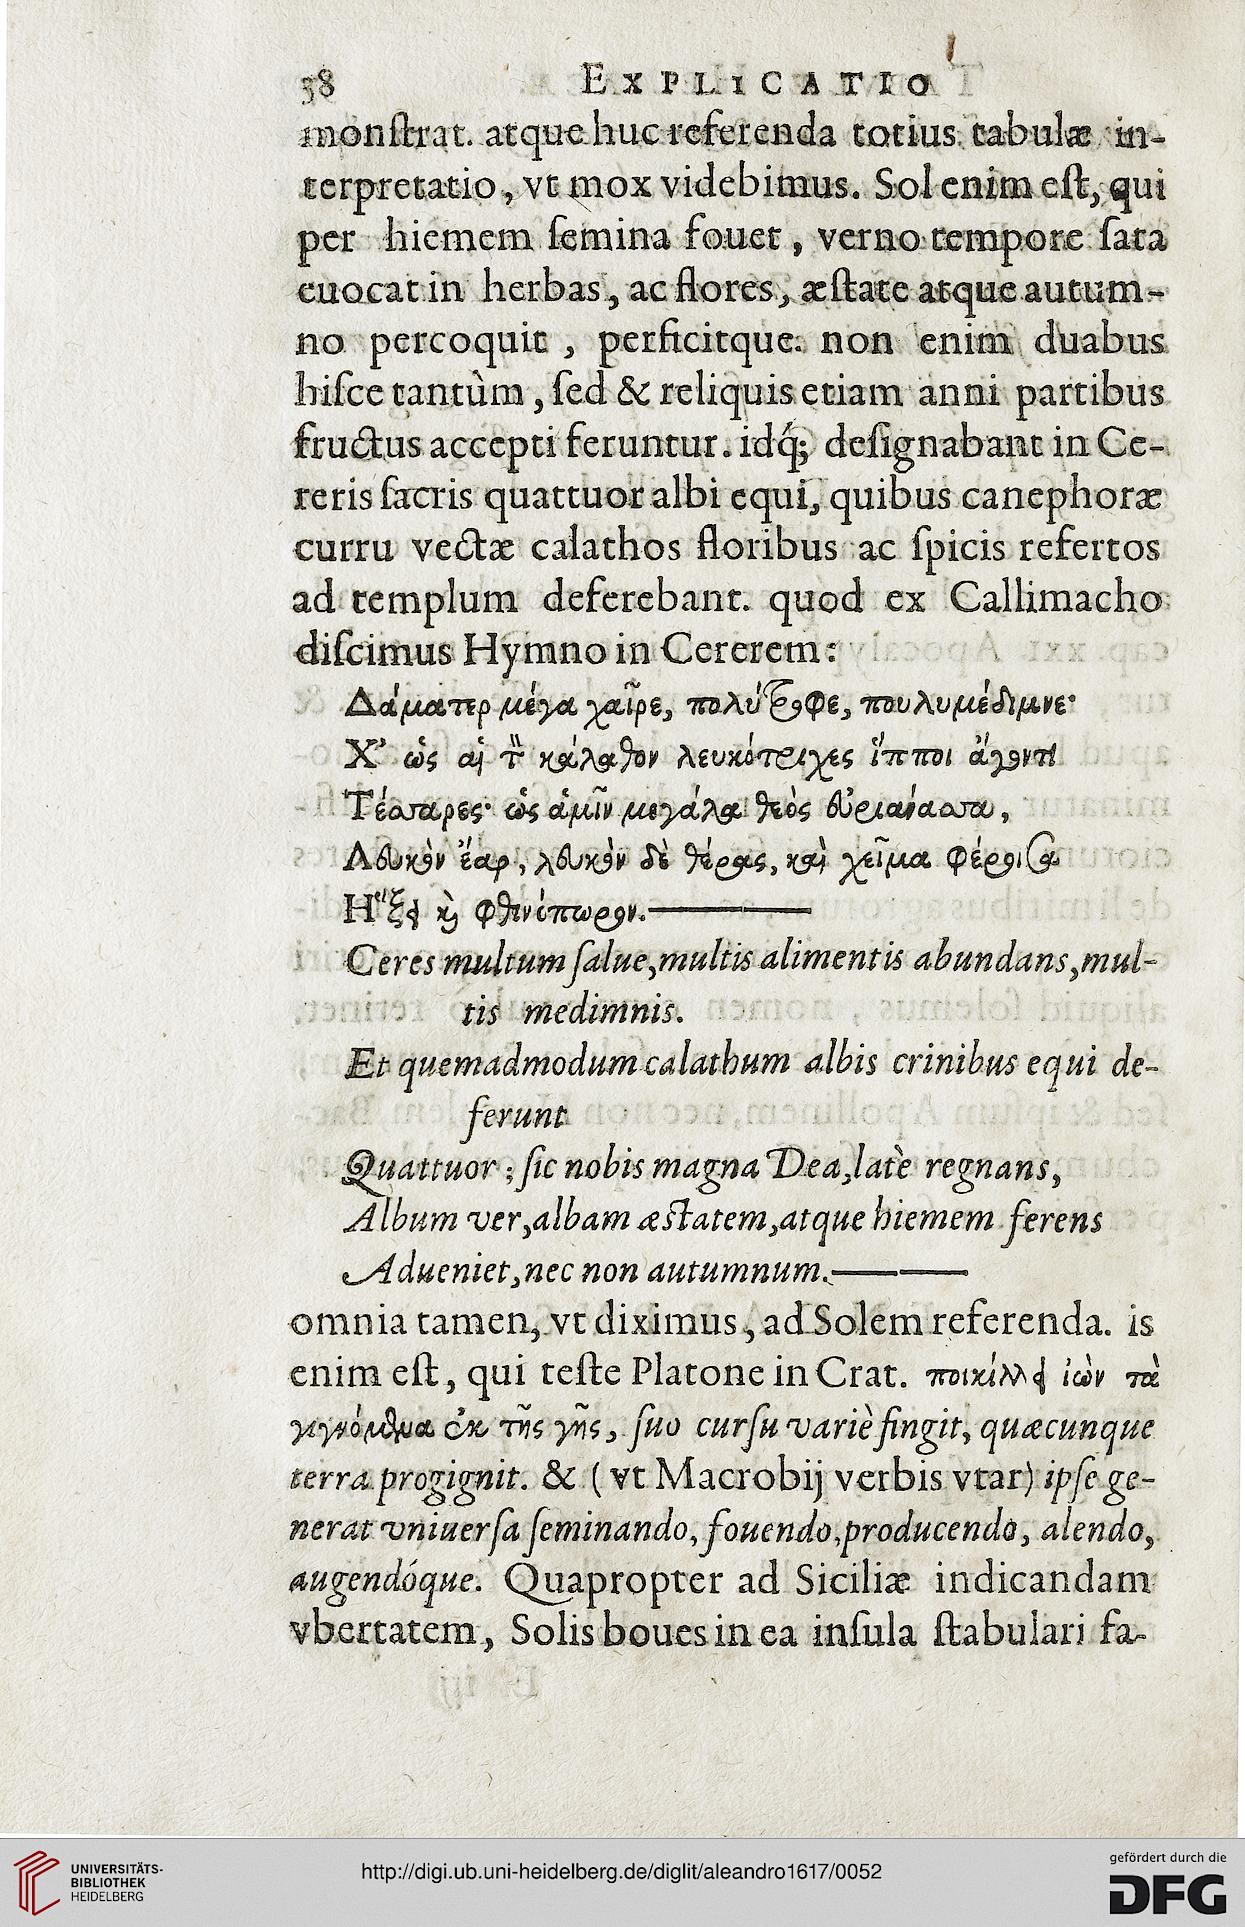 38 EXPLICATIO
monſtrat. atque huc referenda totius tabulæ in-
terpretatio, vt mox videbimus. Sol enim eſt, qui
per hiemem ſemina fouet, verno tempore ſata
euocat in herbas, ac flores, æſtate atque autum-
no percoquit, perficitque. non enim duabus
hiſce tantùm, ſed & reliquis etiam anni partibus
fructus accepti feruntur. idq́; deſignabant in Ce-
reris ſacris quattuor albi equi, quibus canephoræ
curru vectæ calathos floribus ac ſpicis refertos
ad templum deferebant. quod ex Callimacho
diſcimus Hymno in Cererem:
Δάματερ μέγα χαῖρε, πολύτροφε, πουλυμέδιμνε·
Χ' ὡς αἱ τ̀ κάλαθον λευκότριχες ἵπποι ἄγοντι
Τέσσαρες· ὡς ἁμῖν μεγάλα θεὸς εὐριανάσσα,
Λευκὸν ἔαρ, λευκὸν δὲ θέρος, καὶ χεῖμα φέροισα
Ηʽ´ξει καὶ φθινόπωρον.
Ceres multum ſalue, multis alimentis abundans, mul-
tis medimnis.
Et quemadmodum calathum albis crinibus equi de-
ferunt
Quattuor; ſic nobis magna Dea, latè regnans,
Album ver, albam æſtatem, atque hiemem ferens
Adueniet, nec non autumnum.
omnia tamen, vt diximus, ad Solem referenda. is
enim eſt, qui teſte Platone in Crat. ποικίλλει ἰὼν τὰ
γιγνόμενα ἐκ τῆς γῆς, ſuo curſu variè fingit, quæcunque
terra progignit. & (vt Macrobij verbis vtar) ipſe ge-
nerat vniuerſa ſeminando, fouendo, producendo, alendo,
augendóque. Quapropter ad Siciliæ indicandam
vbertatem, Solis boues in ea inſula ſtabulari fa-
UNIVERSITÄTS-
BIBLIOTHEK
HEIDELBERG
http://digi.ub.uni-heidelberg.de/diglit/aleandro1617/0052
gefördert durch die
DFG